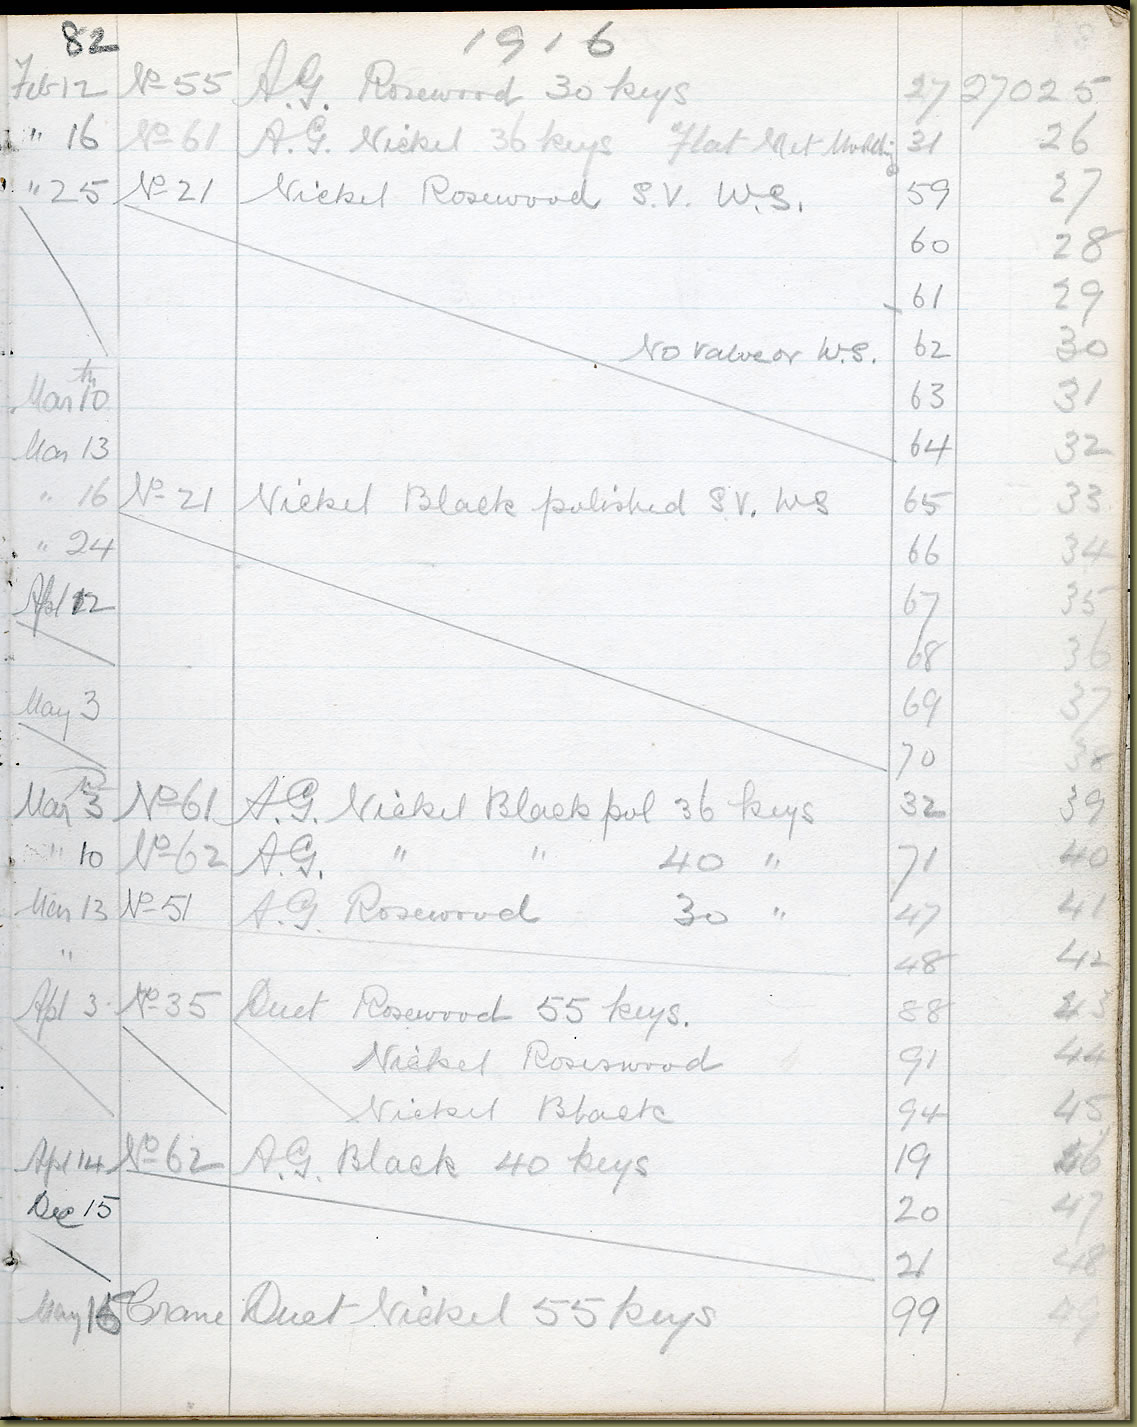 82 1916
Feb 12 No 55 A.G. Rosewood 30 keys 27 27025
" 16 No 61 A.G. Nickel 36 keys Flat Met Molding 31 26
" 25 No 21 Nickel Rosewood S.V. W.S. 59 27
60 28
61 29
No valve or W.S. 62 30
Mar 10th 63 31
Mar 13 64 32
" 16 No 21 Nickel Black polished S V. W S 65 33
" 24 66 34
Apl 12 67 35
68 36
May 3 69 37
70 38
Mar 3 No 61 A.G. Nickel Black pol 36 keys 32 39
" 10 No 62 A.G. " " 40 " 71 40
Mar 13 No 51 A.G. Rosewood 30 " 47 41
" 48 42
Apl 3 No 35 Duet Rosewood 55 keys. 88 43
Nickel Roseswood 91 44
Nickel Black 94 45
Apl 14 No 62 A.G. Black 40 keys 19 46
Dec 15 20 47
21 48
May 15 Crane Duet Nickel 55 keys 99 49